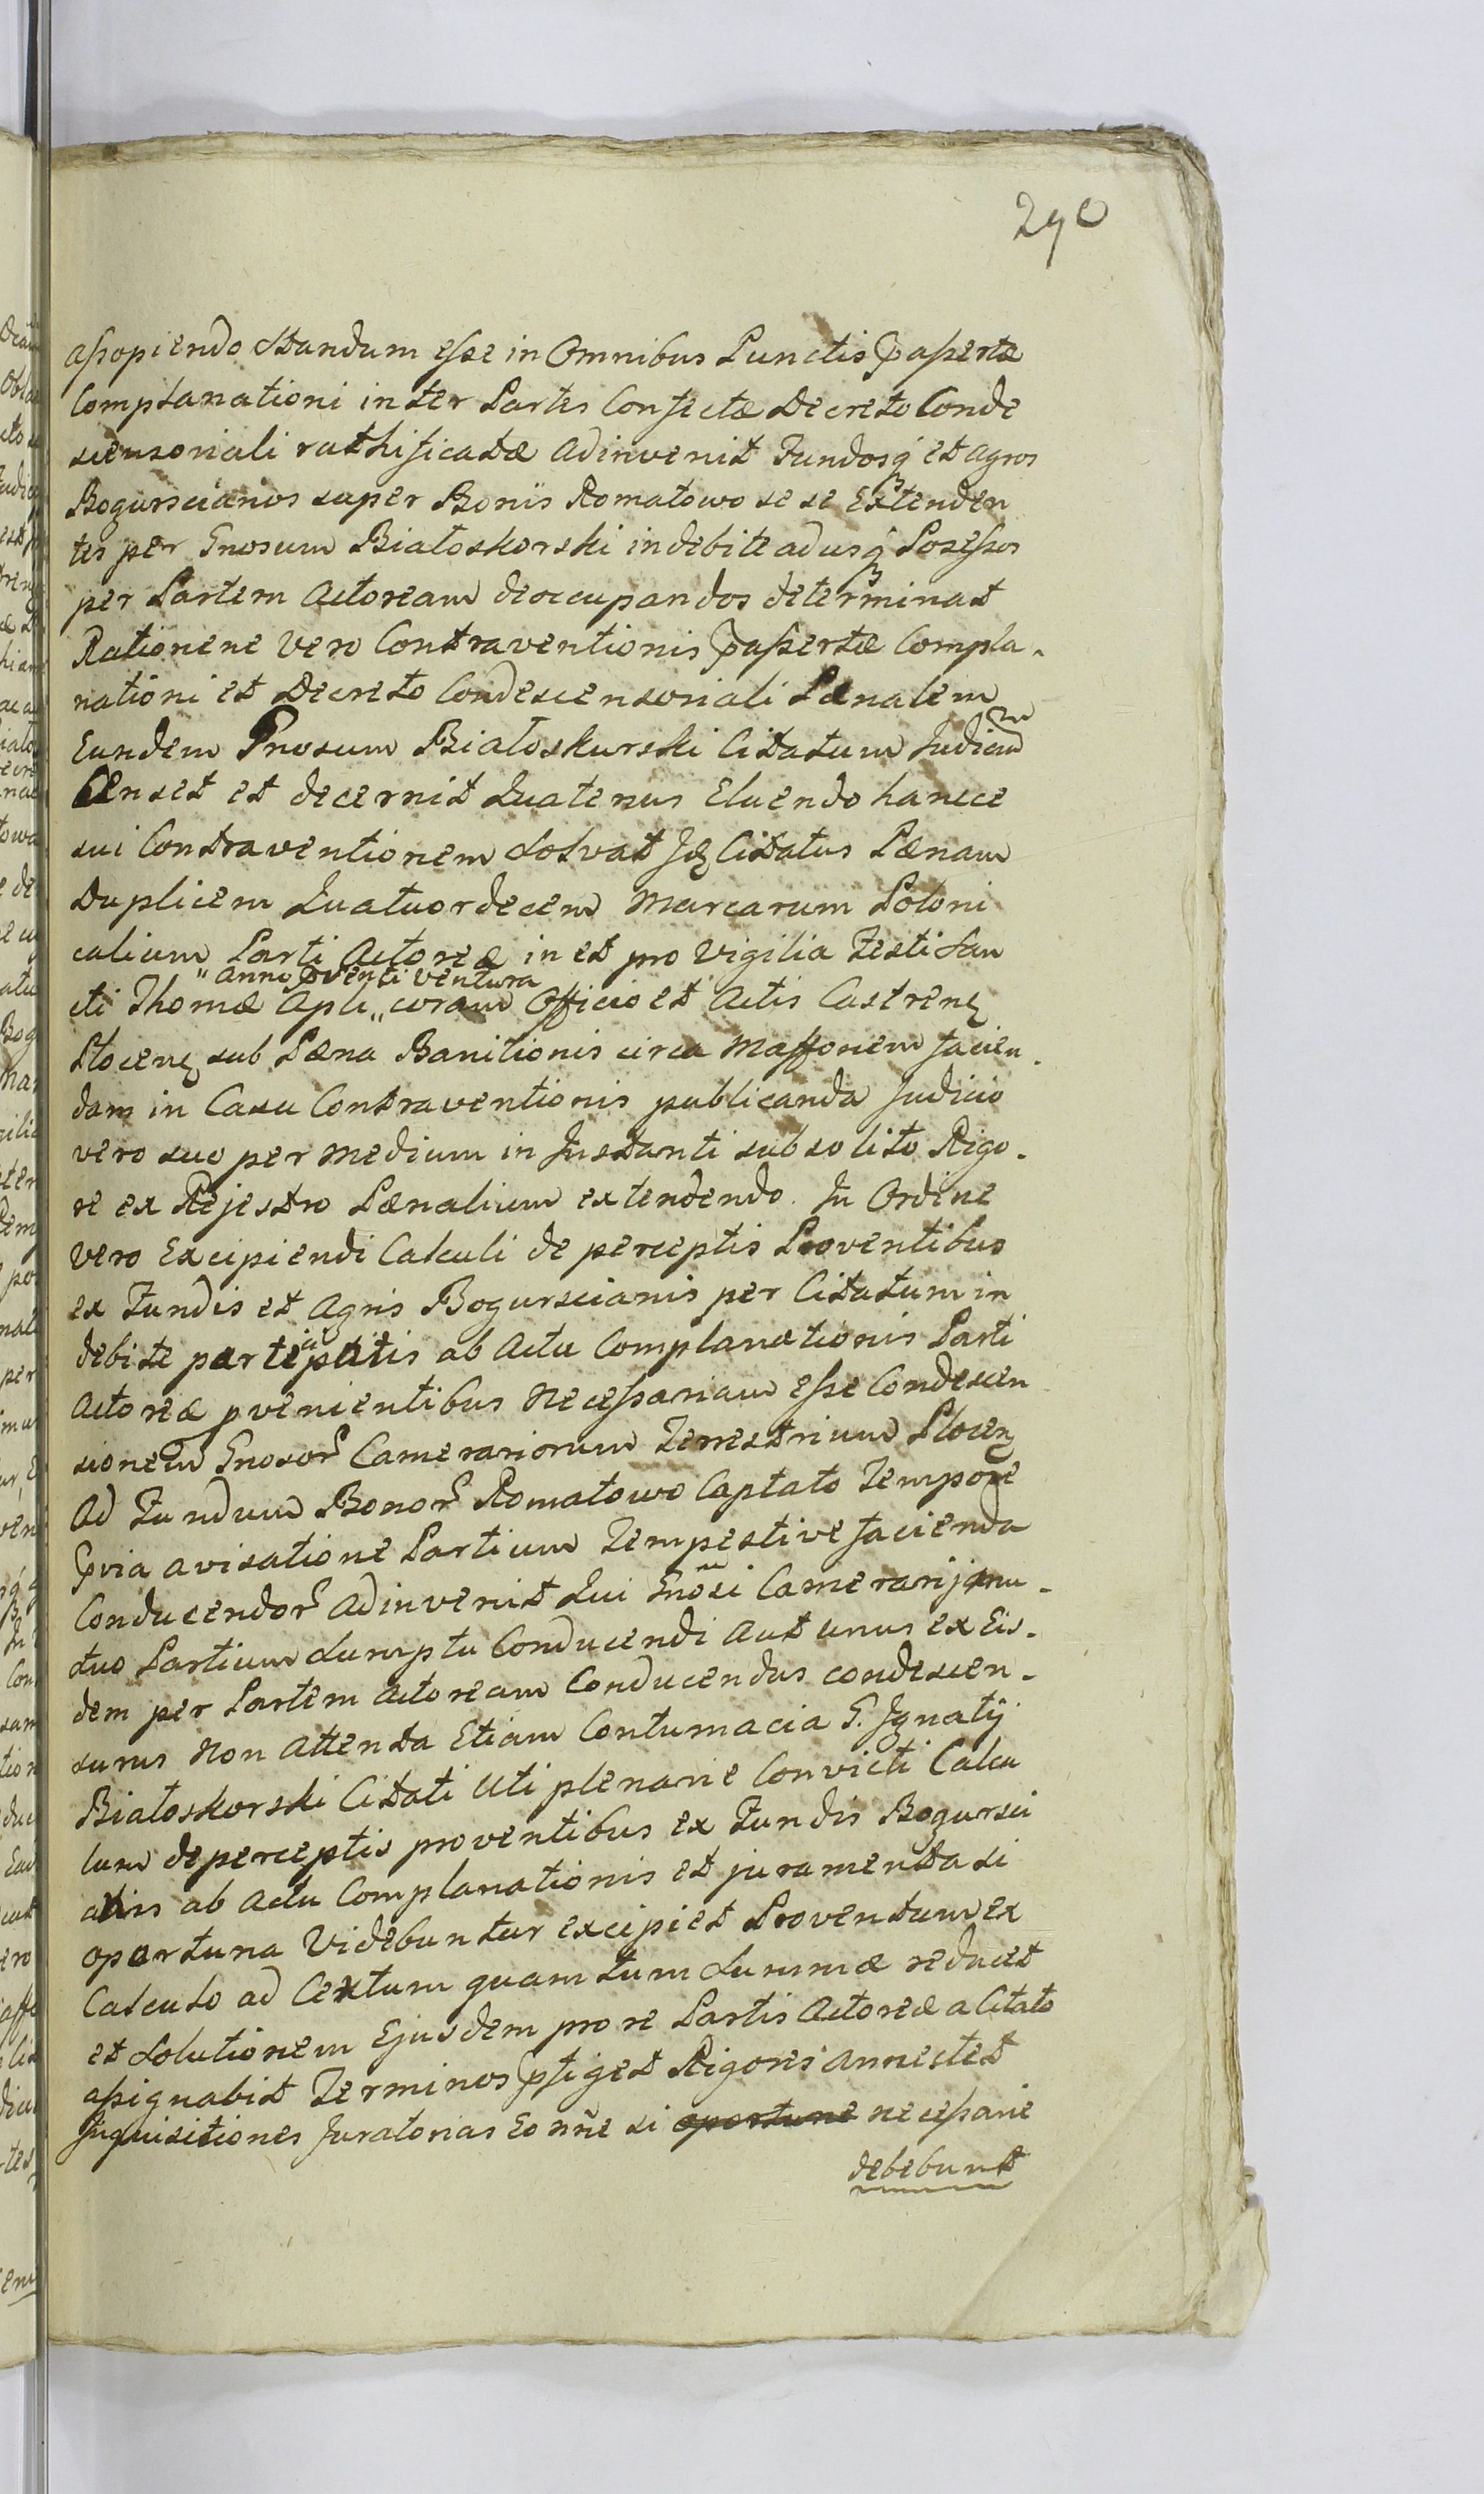 290
assopiendo Standum esse in Omnibus Punctis p̄assertæ
Complanationi inter Partes Confectæ Decreto Conde
scensoriali rathificatæ adinvenit Fundosq́ et agros
Bogurscianos super Bonis Romatowo se se Extenden
tes per Gnosum Białoskorski indebite adusq́ Posessos
per Partem Actoream deoccupandos determinat
Rationene vero Contraventionis p̄assertæ Compla-
nationi et Decreto Condescensoriali Pænalem
Eundem Gnosum Białoskurski Citatum Judicium
Censet et decernit Quatenus Eluendo hancce
sui Contraventionem Solvat Jdę Citatus Pænam
Duplicem Quatuordecem Marcarum Poloni
calium Parti Actoreæ in et pro Vigilia Festi San
"Anno p̄venti ventura
cti Thomæ Apli " coram Officio et Actis Castrenę
Plocenę sub Pæna Banitionis circa Maffoniem facien-
dam in Casu Contraventionis publicanda Judicio
vero suo per medium in Instanti sub solito Rigo-
re ex Rejestro Pænalium extendendo. In Ordine
vero Excipiendi Calculi de perceptis Proventibus
ex Fundis et Agris Bogurscianis per Citatum in
debite participatis ab Actu Complanationis Parti
Actoreæ pvenientibus Necessariam esse Condescen
sionem Gnosor Camerariorum Terrestrium Plocenę
Ad Fundum Bonor Romatowo Captato Tempore
p̄via avisatione Partium Tempestive facienda
Conducendor adinvenit Qui Gnosi Camerarij mu-
tuo Partium Sumptu Conducendi aut unus ex Eis-
dem per Partem Actoream Conducendus condescen-
surus Non Attenta Etiam Contumacia G. Ignatij
Białoskorski Citati Uti plenarie Convicti Calcu
lum de perceptis proventibus ex Fundis Bogursci
anis ab Actu Complanationis et juramenta si
oportuna Videbuntur excipiet Proventum ex
Calculo ad Certum quantum Summæ reducet
et Solutionem Ejusdem pro re Partis Actoreæ a Citato
assignabit Terminos p̄figet Rigores annectet
Inquisitiones Juratorias Eo nñe si oportune necessarie
debebunt